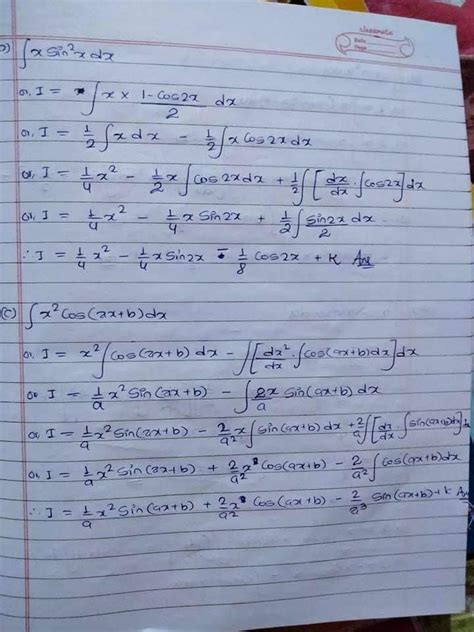 classmate
Date
Page
b) ∫x Sin²x dx
or, I = ∫x × (1-Cos2x)/2 dx
or, I = 1/2 ∫x dx - 1/2 ∫x Cos2x dx
or, I = 1/4 x² - 1/2 x ∫Cos2x dx + 1/2 ∫[dx/dx · ∫Cos2x] dx
or, I = 1/4 x² - 1/4 x Sin2x + 1/2 ∫ Sin2x/2 dx
∴ I = 1/4 x² - 1/4 x Sin2x - 1/8 Cos2x + K Ans
(c) ∫x² Cos(ax+b) dx
or, I = x² ∫Cos(ax+b) dx - ∫[dx²/dx · ∫Cos(ax+b)dx] dx
or I = 1/a x² Sin(ax+b) - ∫ 2x/a Sin(ax+b) dx
or, I = 1/a x² Sin(ax+b) - 2/a x ∫Sin(ax+b) dx + 2/a ∫[dx/dx · ∫Sin(ax+b)dx] dx
or, I = 1/a x² Sin(ax+b) + 2/a² x Cos(ax+b) - 2/a² ∫Cos(ax+b)dx
∴ I = 1/a x² Sin(ax+b) + 2/a² x Cos(ax+b) - 2/a³ Sin(ax+b) + K Ans